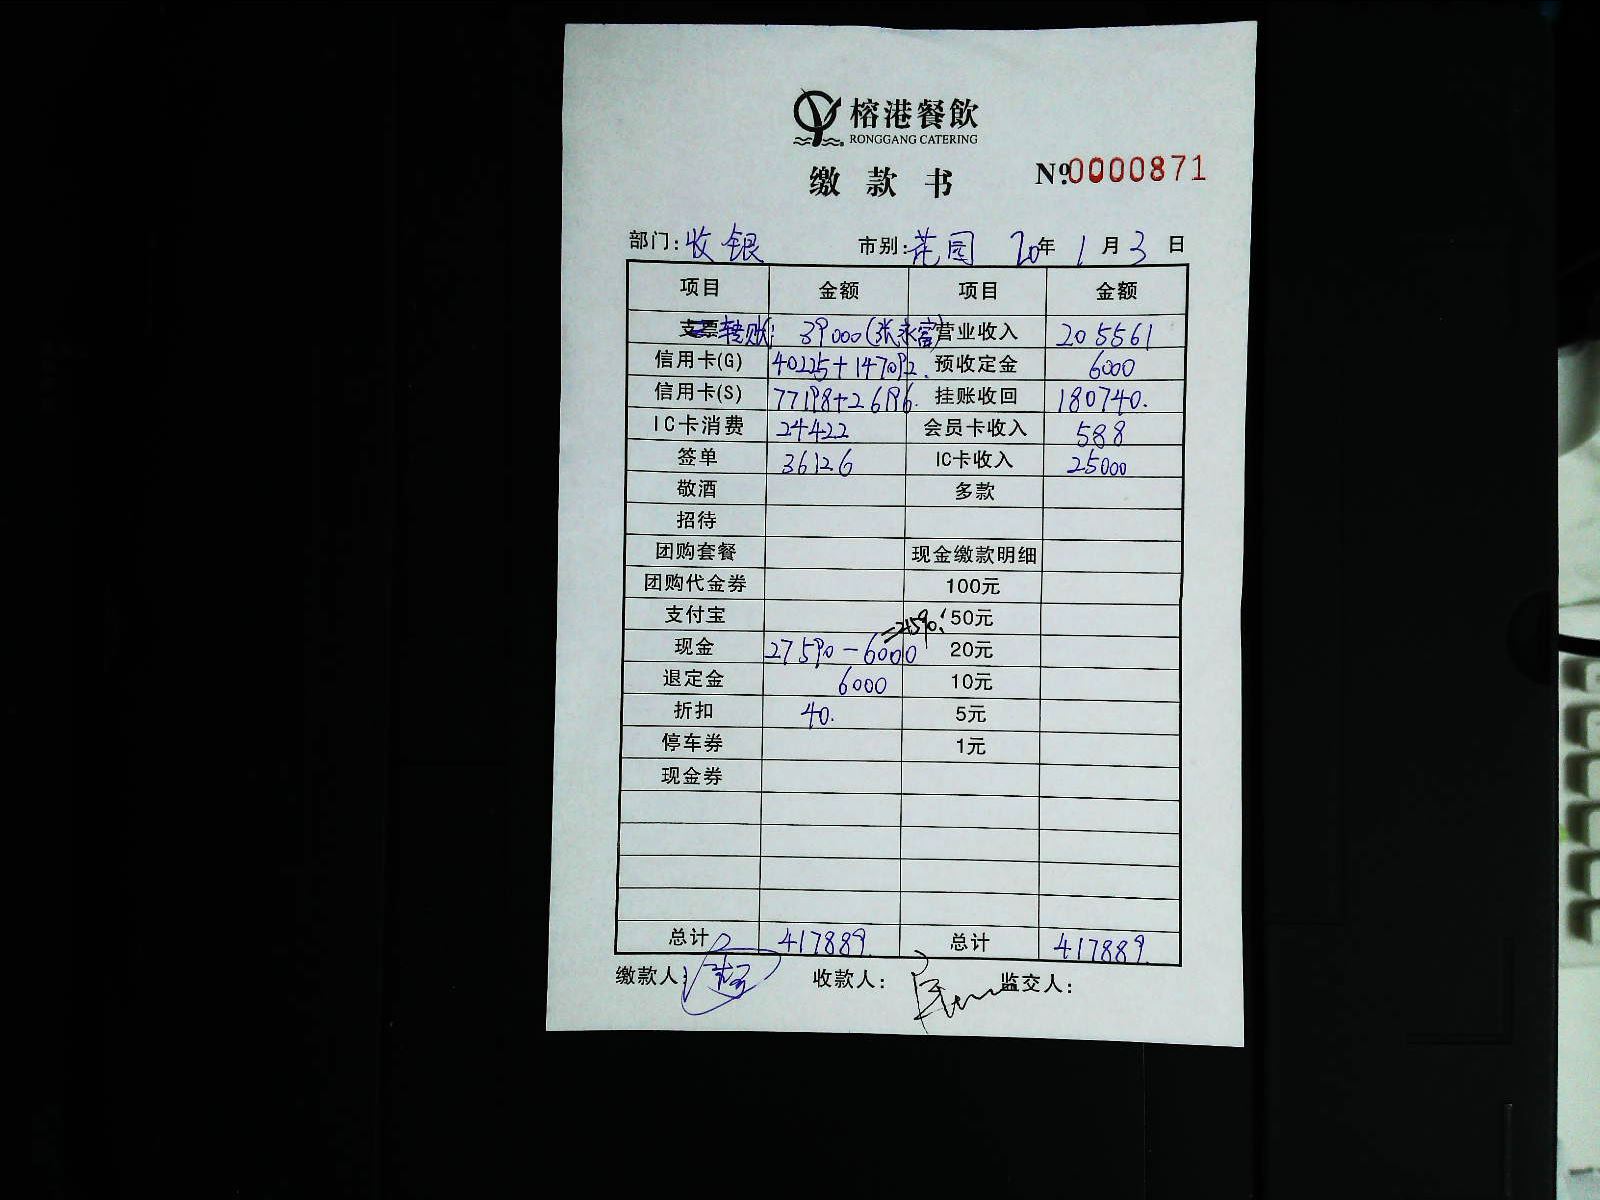 榕港餐飲
RONGGANG CATERING
缴款书 Nº 0000871
部门:收银 市别:花园 20年 1月 3日
项目 金额 项目 金额
支票 转账: 39000(张永富) 营业收入 205561
信用卡(G) 40225+147092. 预收定金 6000
信用卡(S) 77198+26196. 挂账收回 180740.
IC卡消费 24422 会员卡收入 588
签单 36126 IC卡收入 25000
敬酒 多款
招待
团购套餐 现金缴款明细
团购代金券 100元
支付宝 50元
现金 27590-6000 =21590. 20元
退定金 6000 10元
折扣 40. 5元
停车券 1元
现金券
总计 417889. 总计 417889.
缴款人: 收款人: 监交人: